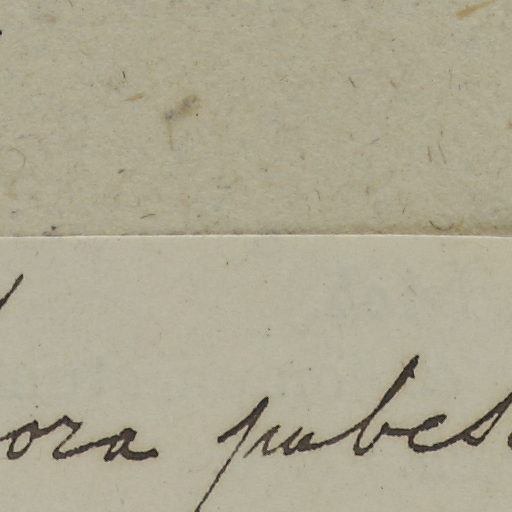 ora pubes